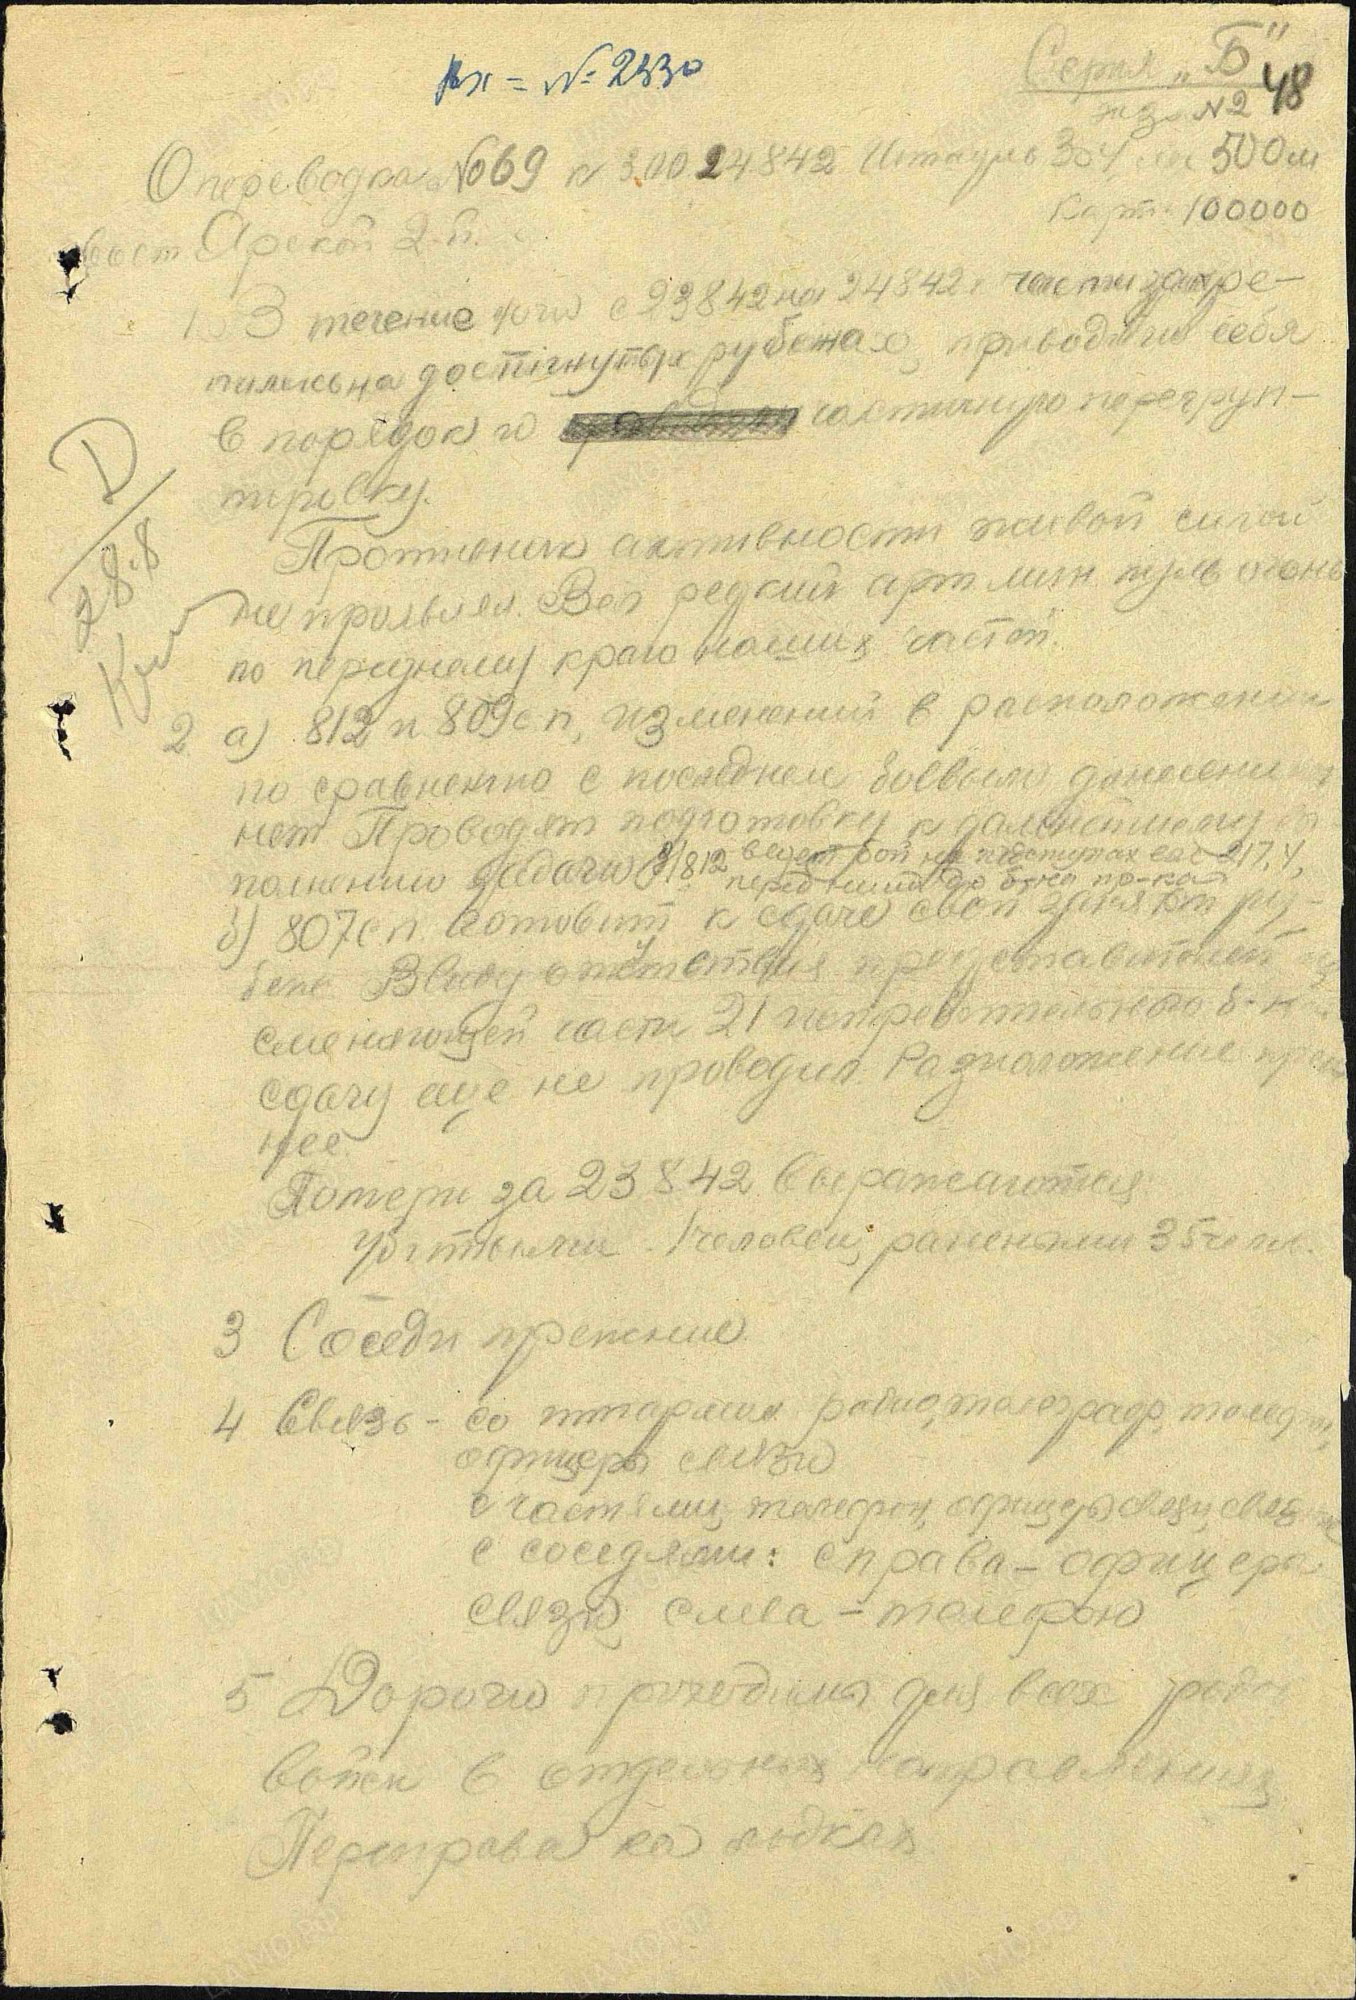 Вх = № 2330
Серия „Б"
экз. №2 48
Опересводка №069 к 3.00 24842 Штадив 304 500 м
Карт. 100000
Арской 2-й.
1. В течение ночи с 23842 на 24842 г части закре-
пились на достигнутых рубежах, приводили себя
в порядок и частичную перегруп-
пировку.
Противник активности живой силой
не проявлял. Вел редкий арт. мин. пул. огонь
по переднему краю наших частей.
Д
28.8
2 а) 812 и 809 сп, изменений в расположении
по сравнению с последнем боевым донесением
нет. Проводят подготовку к дальнейшему вы-
полнению задачи 812 ведет бой на подступах выс 217,4,
перед ними до б-на пр-ка
б) 807 сп готовит к сдаче свой ру-
беж. Ввиду отсутствия представителей
сменяющей части 21 истребительного б-на
сдачу еще не проводил. Расположение преж-
нее.
Потери за 23842 выражаются:
убитыми - 1 человек, ранеными 35 чел.
3 Соседи прежние.
4 Связь - со штармом радио, телеграф, телефон,
офицеры связи
с частями, телефон, офицеры связи,
с соседями: справа - офицеры
связи, слева - телефон
5 Дороги проходимы для всех родов
войск в отдельных направлениях
Переправа на лодках